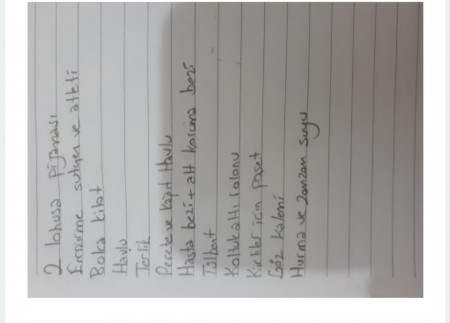 2 lohusa pijaması
Emzirme sutyen ve atleti
Baba kitat
Havlu
Terlik
Peçete ve kağıt Havlu
Hasta bezi + alt koruma bezi
Tülbent
Koltuk altı rolonu
Kirliler için poşet
Göz kalemi
Hurma ve zamzam suyu